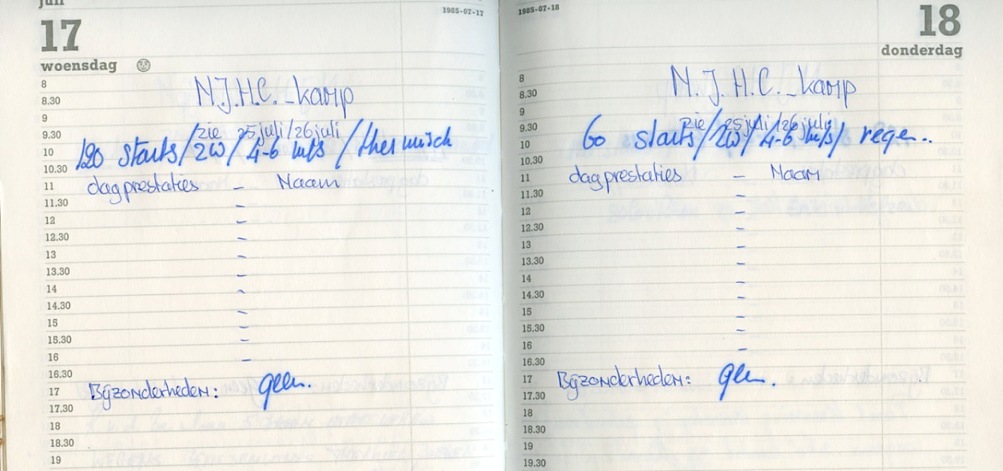 juli
17
woensdag
1985-07-17
8
8.30
N.J.H.C. - kamp
9
9.30
zie 25 juli/26 juli
10
120 starts/ZW/4-6 m/s/thermisch
10.30
11
dagprestaties - Naam
11.30
-
12
-
12.30
-
13
-
13.30
-
14
-
14.30
-
15
-
15.30
-
16
-
16.30
17
Bijzonderheden: geen.
17.30
18
18.30
19
1985-07-18
18
donderdag
8
8.30
N.J.H.C. - kamp
9
9.30
zie 25 juli/26 juli
10
60 starts/ZW/4-6 m/s/regen..
10.30
11
dagprestaties - Naam
11.30
-
12
-
12.30
-
13
-
13.30
-
14
-
14.30
-
15
-
15.30
-
16
-
16.30
17
Bijzonderheden: geen.
17.30
18
18.30
19
19.30